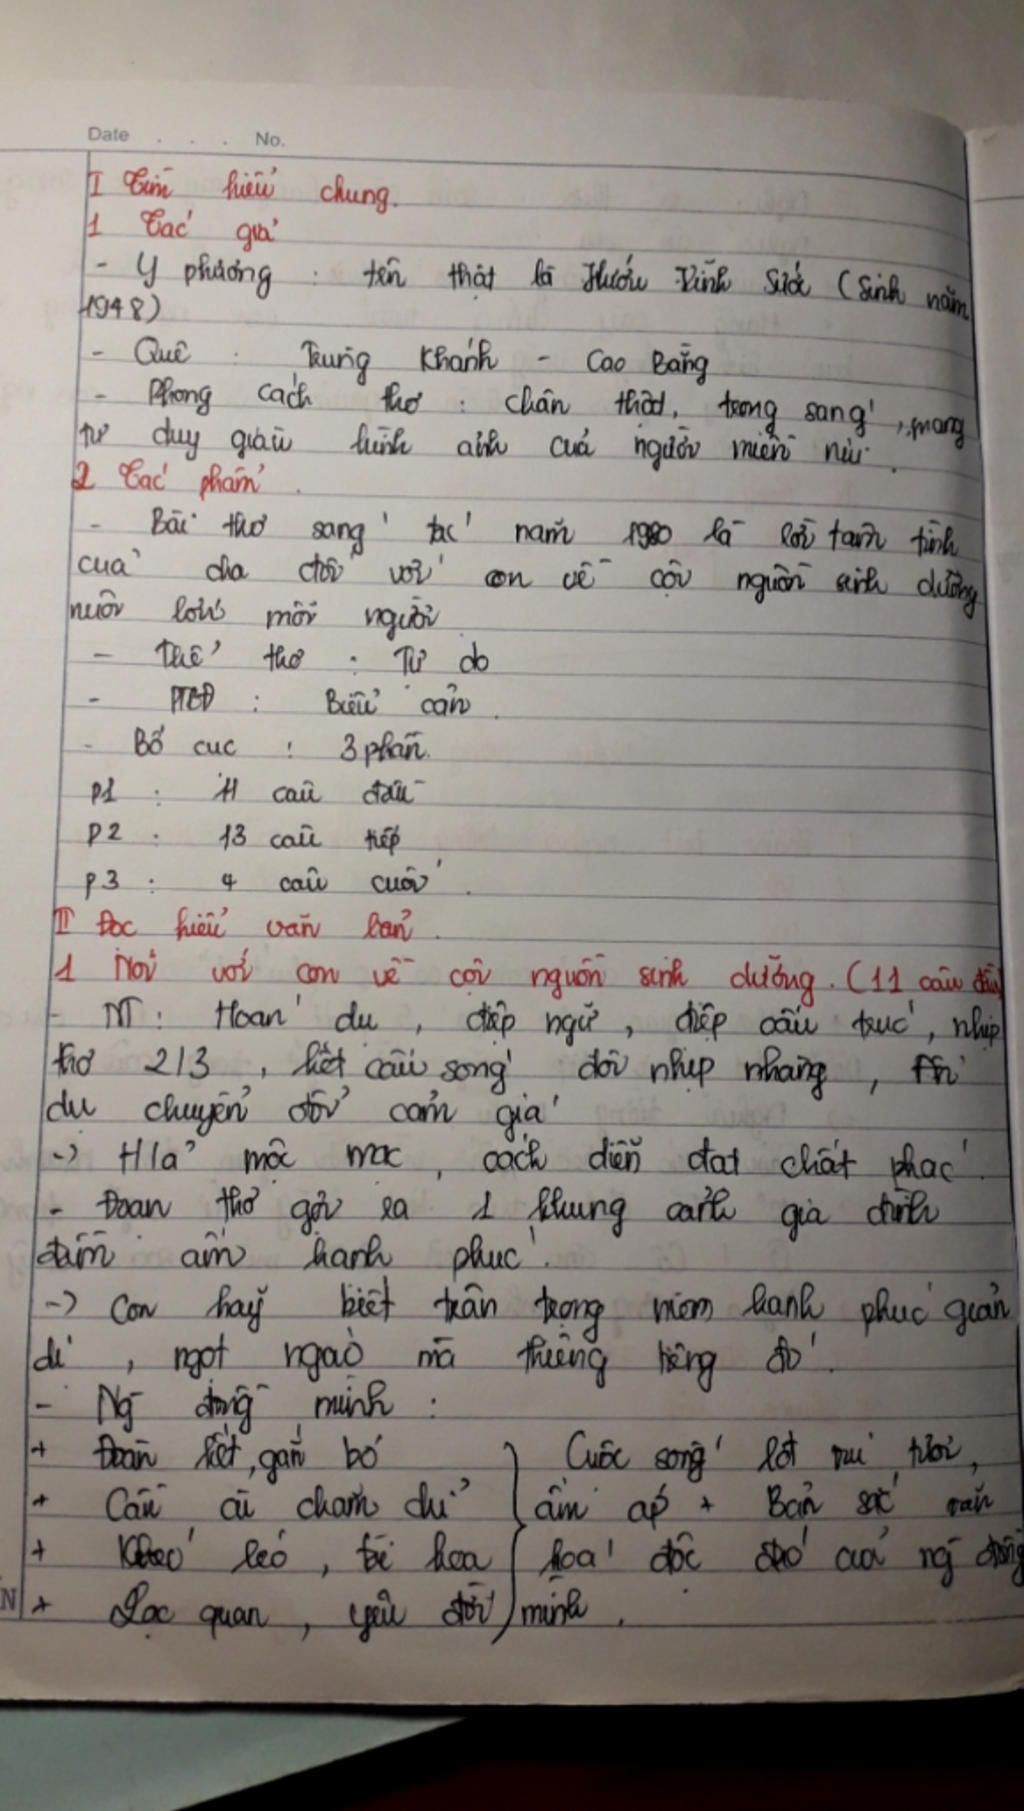 Date . . . No.
I Tìm hiểu chung.
1 Tác giả
- Y phương : tên thật là Hướu Vĩnh Sước (Sinh năm
1948)
- Quê : Trung Khánh - Cao Bằng
- Phong cách thơ : chân thật, trong sáng, mang
tư duy giàu hình ảnh của người miền núi.
2 Tác phẩm.
- Bài thơ sáng tác năm 1980 là lời tâm tình
của cha đối với con về cội nguồn sinh dưỡng
nuôi lớn mỗi người
- Thể thơ : Tự do
- PTBĐ : Biểu cảm.
- Bố cục : 3 phần.
p1 : 11 câu đầu
p2 : 13 câu tiếp
p3 : 4 câu cuối.
II Đọc hiểu văn bản.
1 Nói với con về cội nguồn sinh dưỡng. (11 câu đầu)
- NT : Hoán dụ, điệp ngữ, điệp cấu trúc, nhịp
thơ 2/3, kết cấu song đôi nhịp nhàng, ẩn
dụ chuyển đổi cảm giá
-> H/ả mộc mạc, cách diễn đạt chất phác.
- Đoạn thơ gợi ra 1 khung cảnh gia đình
đầm ấm hạnh phúc.
-> Con hãy biết trân trọng niềm hạnh phúc giản
dị, ngọt ngào mà thiêng liêng đó.
- Ng đồng mình :
+ Đoàn kết, gắn bó Cuộc sống lốt vui tươi,
+ Cần cù chăm chỉ ấm áp + Bản sắc văn
+ Khéo léo, tài hoa hoá độc đáo của ng đồng
+ Lạc quan, yêu đời mình.
N